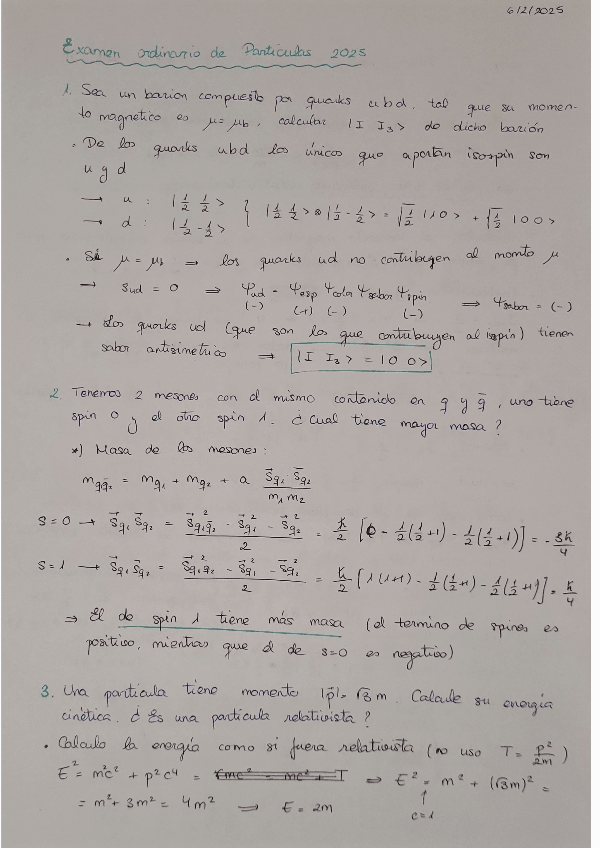 6/2/2025
Examen ordinario de Partículas 2025
1. Sea un barion compuesto por quarks ubd, tal que su momen-
to magnético es μ = μb, calcular |I I₃> de dicho barión
• De los quarks ubd los únicos que aportan isospin son
u y d
→ u : |½ ½>
→ d : |½ -½> } |½ ½> ⊗ |½ -½> = √½ |1 0> + √½ |0 0>
• Si μ = μb ⇒ los quarks ud no contribuyen al momto μ
→ Sud = 0 ⇒ Ψud = Ψesp Ψcolor Ψsabor Ψspin ⇒ Ψsabor = (-)
(-) (+) (-) (-)
→ Los quarks ud (que son los que contribuyen al isospin) tienen
sabor antisimetrico ⇒ |I I₃> = |0 0>
2. Tenemos 2 mesones con el mismo contenido en q y q̄, uno tiene
spin 0 y el otro spin 1. ¿Cual tiene mayor masa?
*) Masa de los mesones:
mq₁q̄₂ = mq₁ + mq₂ + a (S⃗q₁ · S⃗q₂)/(m₁ m₂)
S=0 → S⃗q₁ S⃗q₂ = (S⃗q₁q₂² - S⃗q₁² - S⃗q₂²)/2 = ħ/2 [0 - ½(½+1) - ½(½+1)] = -3ħ/4
S=1 → S⃗q₁ S⃗q₂ = (S⃗q₁q₂² - S⃗q₁² - S⃗q₂²)/2 = ħ/2 [1(1+1) - ½(½+1) - ½(½+1)] = ħ/4
⇒ El de spin 1 tiene más masa (el termino de spines es
positivo, mientras que el de s=0 es negativo)
3. Una partícula tiene momento |p⃗| = √3 m. Calcule su energía
cinética. ¿Es una partícula relativista?
• Calculo la energía como si fuera relativista (no uso T = p²/2m)
E² = m²c² + p²c⁴ = ⇒ E² = m² + (√3m)² =
c=1
= m² + 3m² = 4m² ⇒ E = 2m